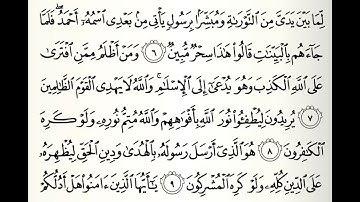 لِّمَا بَيْنَ يَدَيَّ مِنَ التَّوْرَىٰةِ وَمُبَشِّرًا بِرَسُولٍ يَأْتِى مِنۢ بَعْدِى ٱسْمُهُۥٓ أَحْمَدُ ۖ فَلَمَّا
جَآءَهُم بِٱلْبَيِّنَٰتِ قَالُوا۟ هَٰذَا سِحْرٌ مُّبِينٌ ٦ وَمَنْ أَظْلَمُ مِمَّنِ ٱفْتَرَىٰ
عَلَى ٱللَّهِ ٱلْكَذِبَ وَهُوَ يُدْعَىٰٓ إِلَى ٱلْإِسْلَٰمِ ۚ وَٱللَّهُ لَا يَهْدِى ٱلْقَوْمَ ٱلظَّٰلِمِينَ
٧ يُرِيدُونَ لِيُطْفِـُٔوا۟ نُورَ ٱللَّهِ بِأَفْوَٰهِهِمْ وَٱللَّهُ مُتِمُّ نُورِهِۦ وَلَوْ كَرِهَ
ٱلْكَٰفِرُونَ ٨ هُوَ ٱلَّذِىٓ أَرْسَلَ رَسُولَهُۥ بِٱلْهُدَىٰ وَدِينِ ٱلْحَقِّ لِيُظْهِرَهُۥ
عَلَى ٱلدِّينِ كُلِّهِۦ وَلَوْ كَرِهَ ٱلْمُشْرِكُونَ ٩ يَٰٓأَيُّهَا ٱلَّذِينَ ءَامَنُوا۟ هَلْ أَدُلُّكُمْ